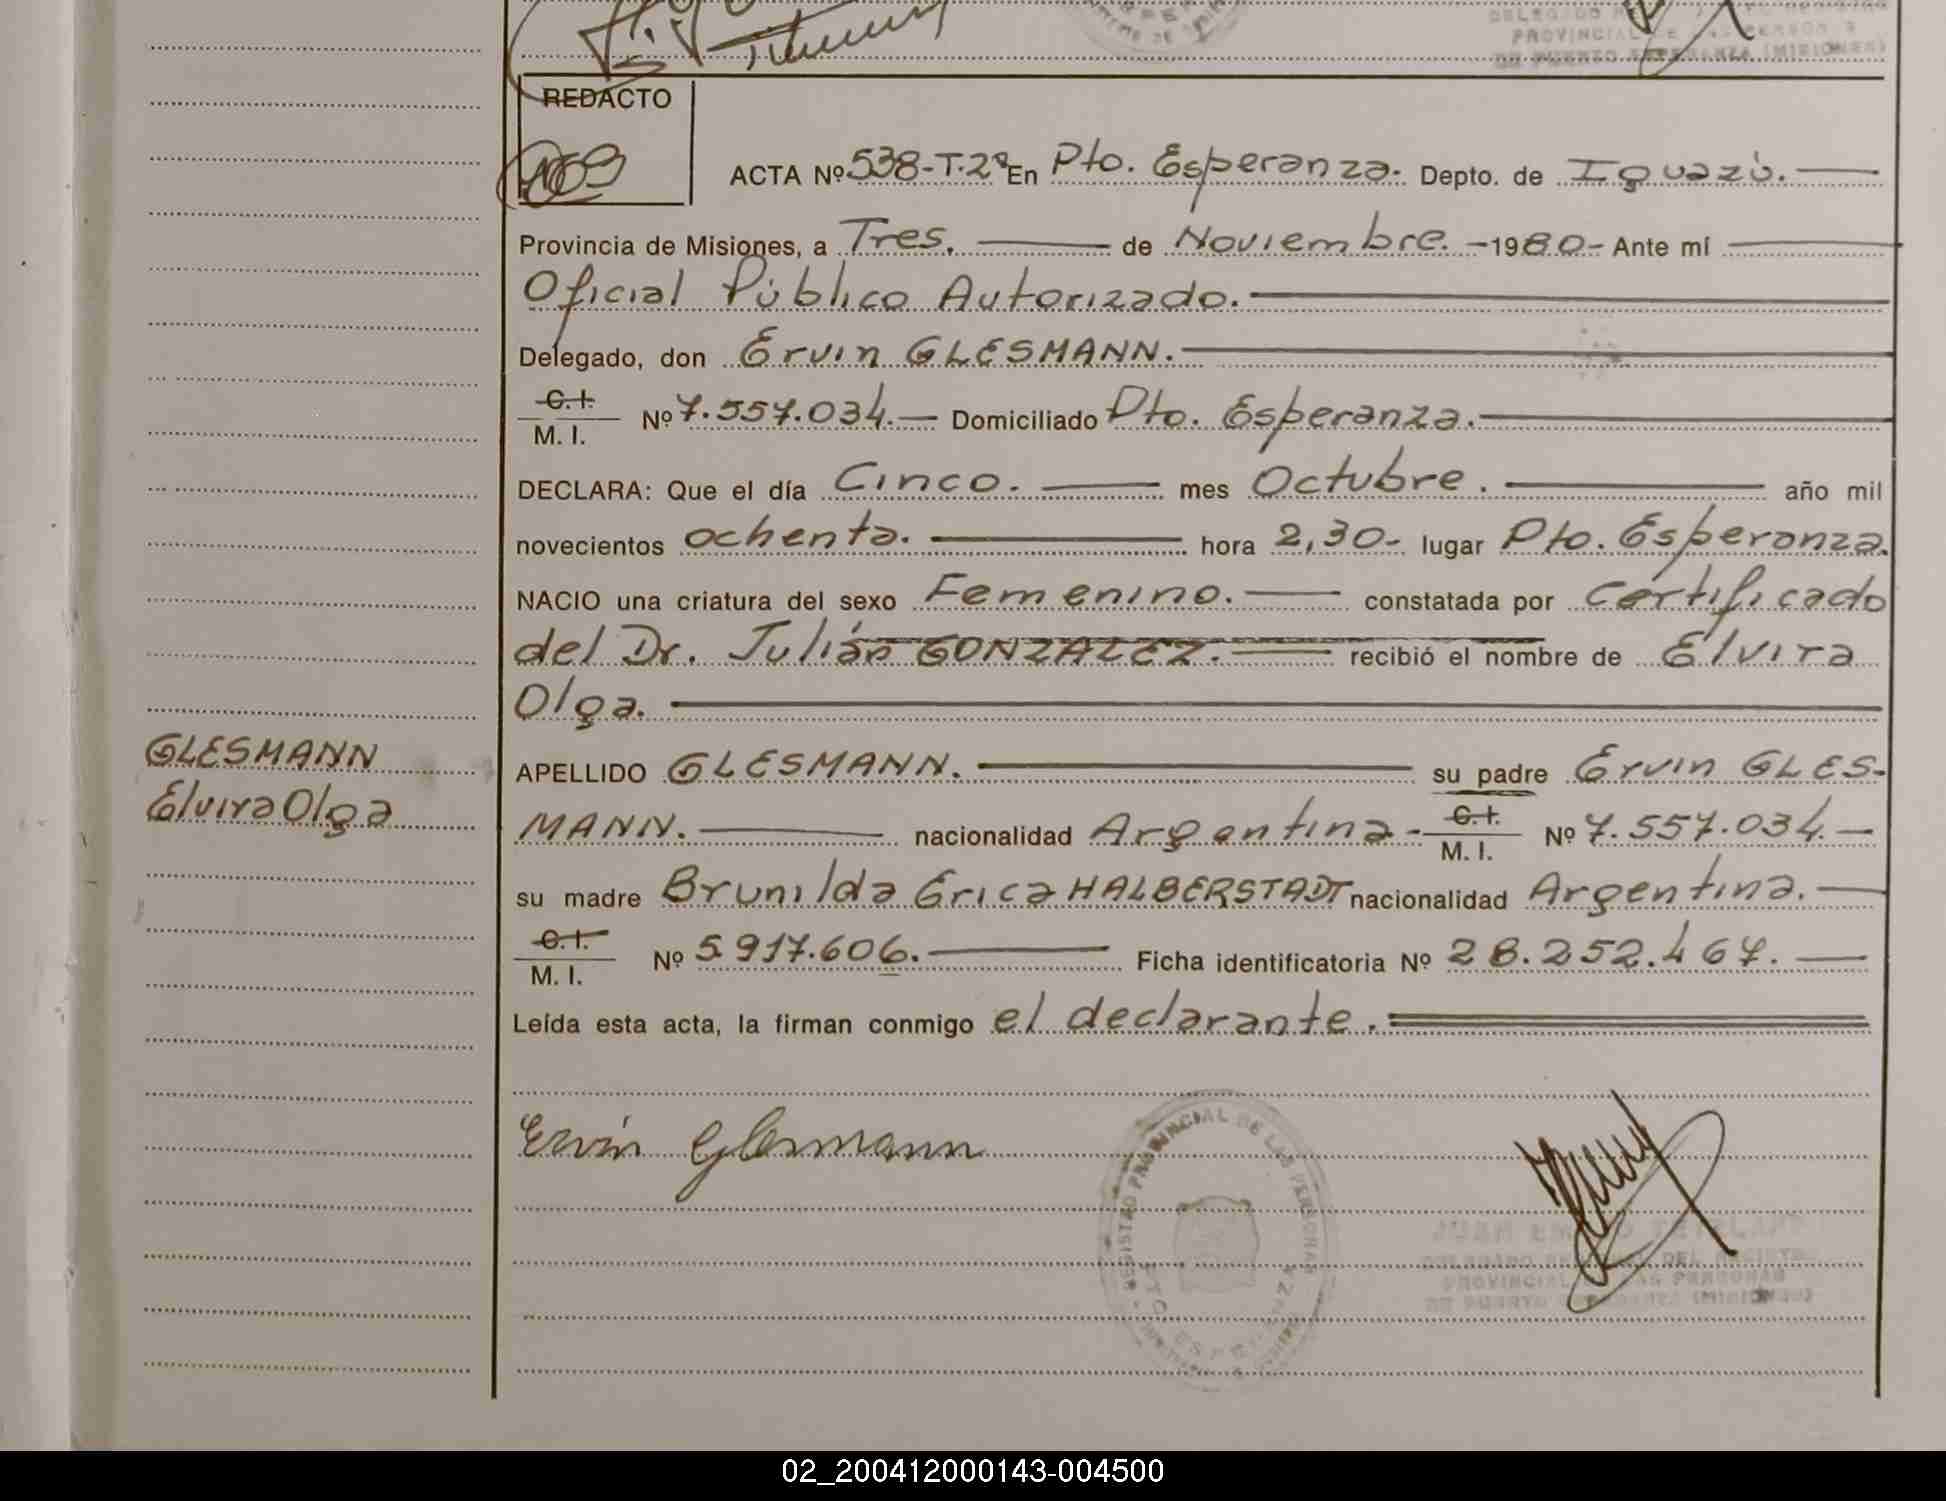 DELEGADO
PROVINCIAL DE LAS PERSONAS
DE PUERTO ESPERANZA (MISIONES)
REDACTO
ACTA Nº 538-T.2º En Pto. Esperanza. Depto. de Iguazú.
Provincia de Misiones, a Tres. de Noviembre. -1980- Ante mí
Oficial Público Autorizado.
Delegado, don Ervin GLESMANN.
C.I. / M. I. Nº 7.557.034. Domiciliado Pto. Esperanza.
DECLARA: Que el día Cinco. mes Octubre. año mil
novecientos ochenta. hora 2,30- lugar Pto. Esperanza.
NACIO una criatura del sexo Femenino. constatada por Certificado
del Dr. Julián GONZALEZ. recibió el nombre de Elvira
Olga.
GLESMANN
Elvira Olga
APELLIDO GLESMANN. su padre Ervin GLES-
MANN. nacionalidad Argentina- C.I. / M. I. Nº 7.557.034.
su madre Brunilda Erica HALBERSTADT nacionalidad Argentina.
C.I. / M. I. Nº 5.917.606. Ficha identificatoria Nº 28.252.467.
Leída esta acta, la firman conmigo el declarante.
Ervin Glesmann
REGISTRO PROVINCIAL DE LAS PERSONAS
JUAN
DELEGADO DEL REGISTRO
PROVINCIAL DE LAS PERSONAS
DE PUERTO ESPERANZA (MISIONES)
02_200412000143-004500